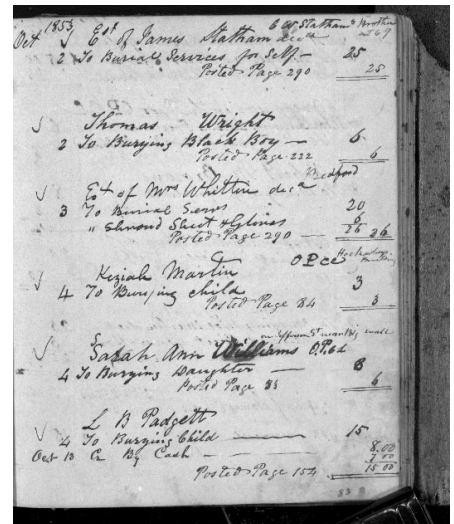 1853
Oct √ Est of James Statham decd
2 To Burial Services for Self — 25
Posted Page 290 25
√ Thomas Wright
2 To Burying Black Boy — 6
Posted Page 222 6
Bedford
√ Est of Mrs Whitten decd
3 To Burial Servs 20
" Shroud Sheet & Gloves 6
Posted Page 290 — 26 26
√ Keziah Martin O.P.
4 To Burying child 3
Posted Page 84 3
√ Sarah Ann Williams O.P.
4 To Burying Daughter — 6
Posted Page 83 6
√ L B Padgett
4 To Burying Child — 15
Oct 13 Cr By Cash — 8.00
7 00
Posted Page 154 15 00
83